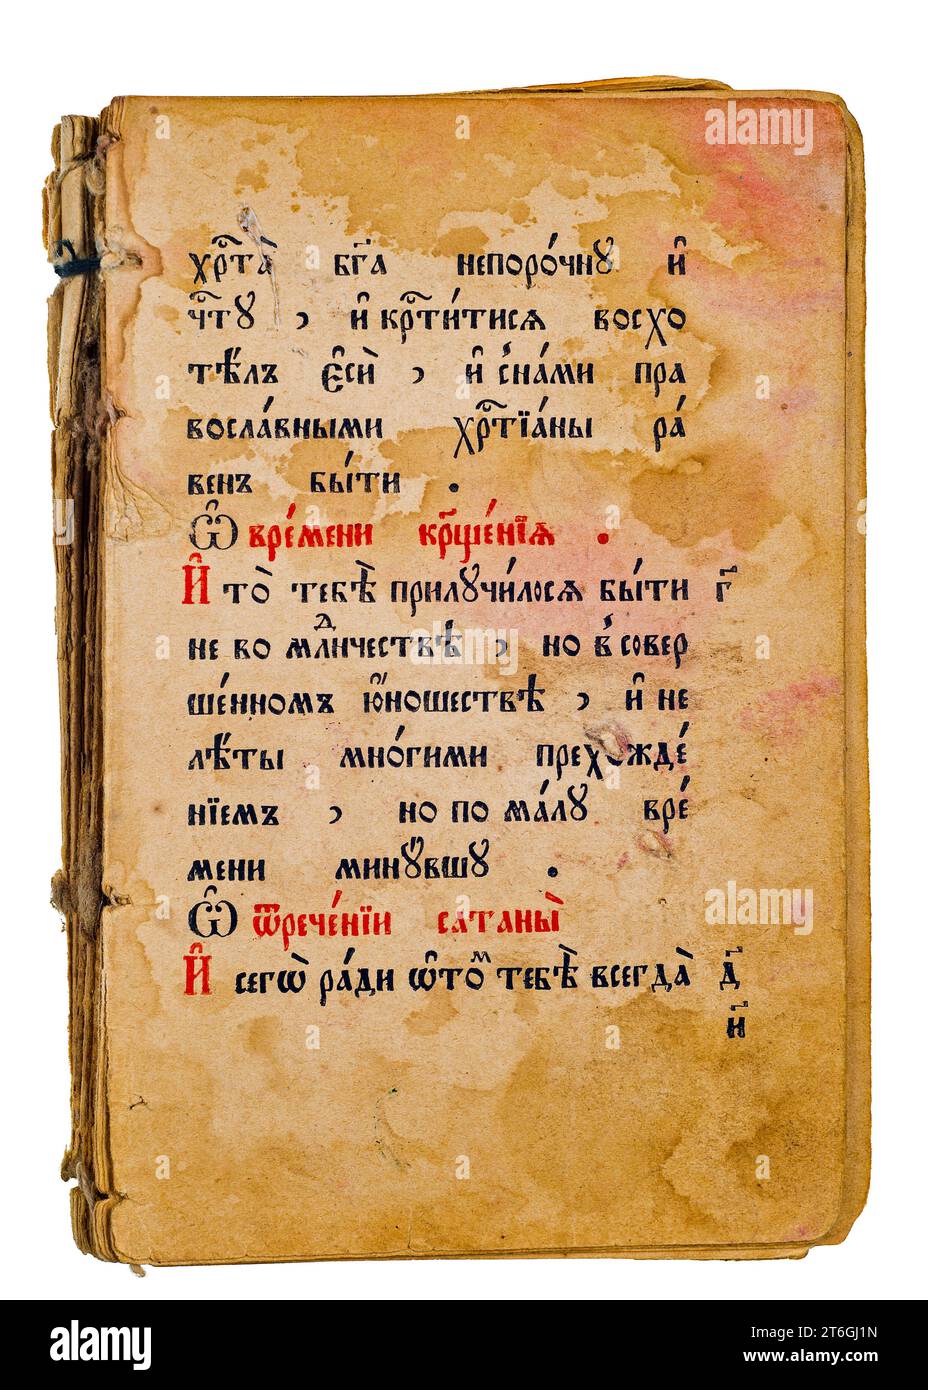 хрⷭ҇та̀ бг҃а непоро́чнꙋ и҆
чⷭ҇тꙋ , и҆ крⷭ҇ти́тисѧ восхо
тѣ́лъ є҆сѝ , и҆ с̾на́ми пра
восла́вными хрⷭ҇тїа́ны ра́
венъ бы́ти .
Ѽ вре́мени крⷭ҇ще́нїѧ .
И҆ то̀ тебѣ̀ прилꙋчи́лосѧ бы́ти г҃
не во млⷣнчествѣ̀ , но в̾ совер
ше́нномъ ю҆́ношествѣ , и҆ не
лѣ́ты мно́гими прехожде́
нїемъ , но по ма́лꙋ вре́
мени минꙋ́вшꙋ .
Ѽ ѿрече́нїи сатаны̀
И҆ сегѡ̀ ра́ди ѡ҆то́ⷨ тебѣ̀ всегда̀ д҃
и҃
alamy
alamy
Image ID: 2T6GJ1N
www.alamy.com